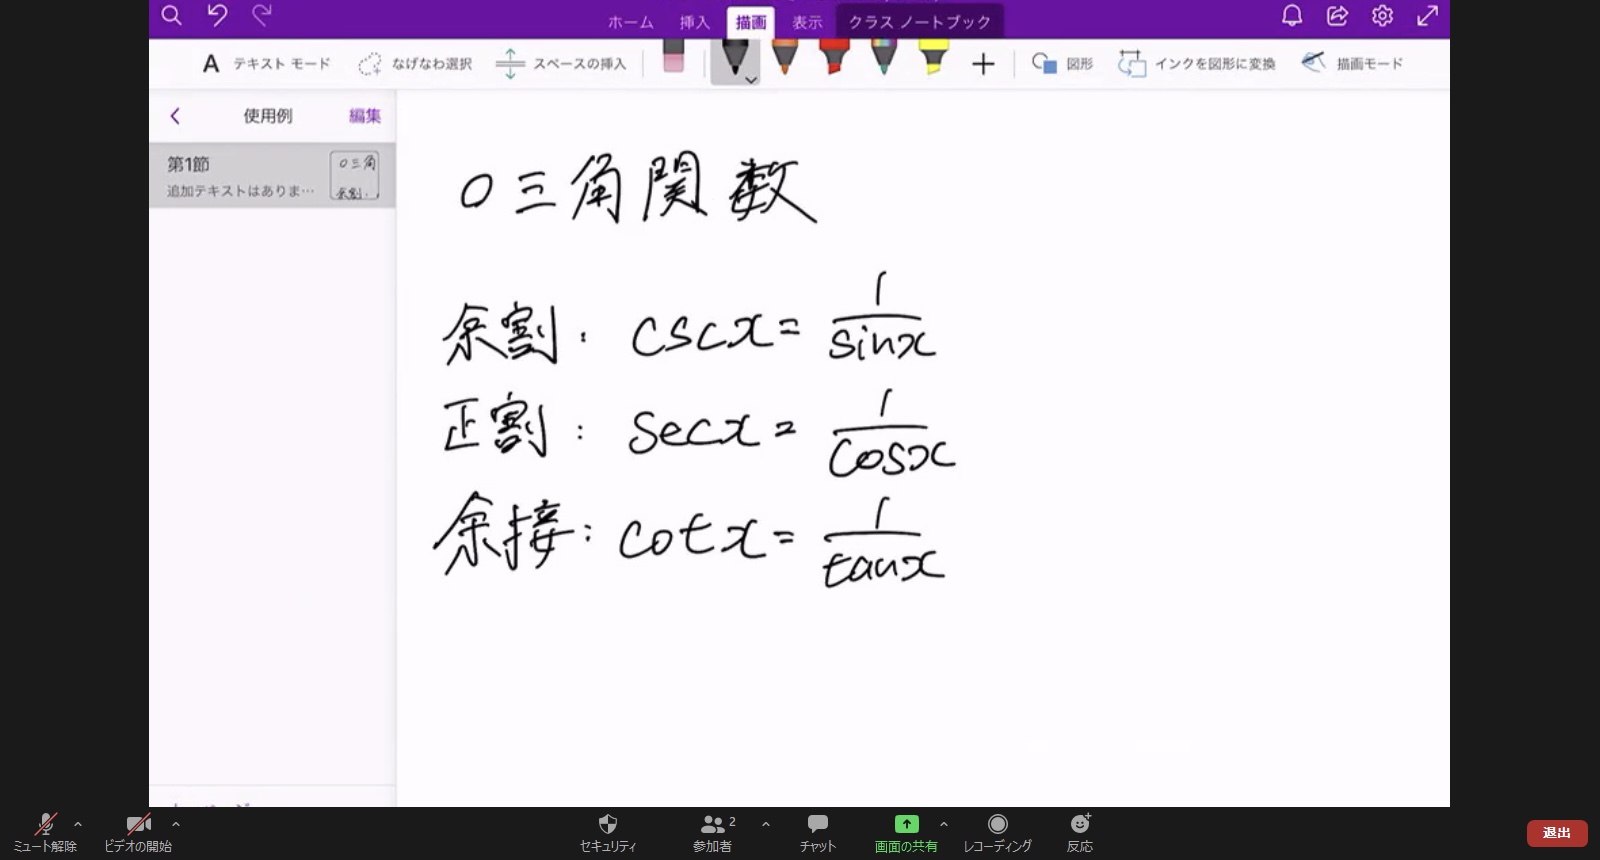 ホーム 挿入 描画 表示 クラス ノートブック
A テキスト モード なげなわ選択 スペースの挿入 図形 インクを図形に変換 描画モード
使用例 編集
第1節
追加テキストはありま…
○三角
余割:
○三角関数
余割: cscx= 1/sinx
正割: secx= 1/cosx
余接: cotx= 1/tanx
ミュート解除 ビデオの開始 セキュリティ 参加者 2 チャット 画面の共有 レコーディング 反応 退出